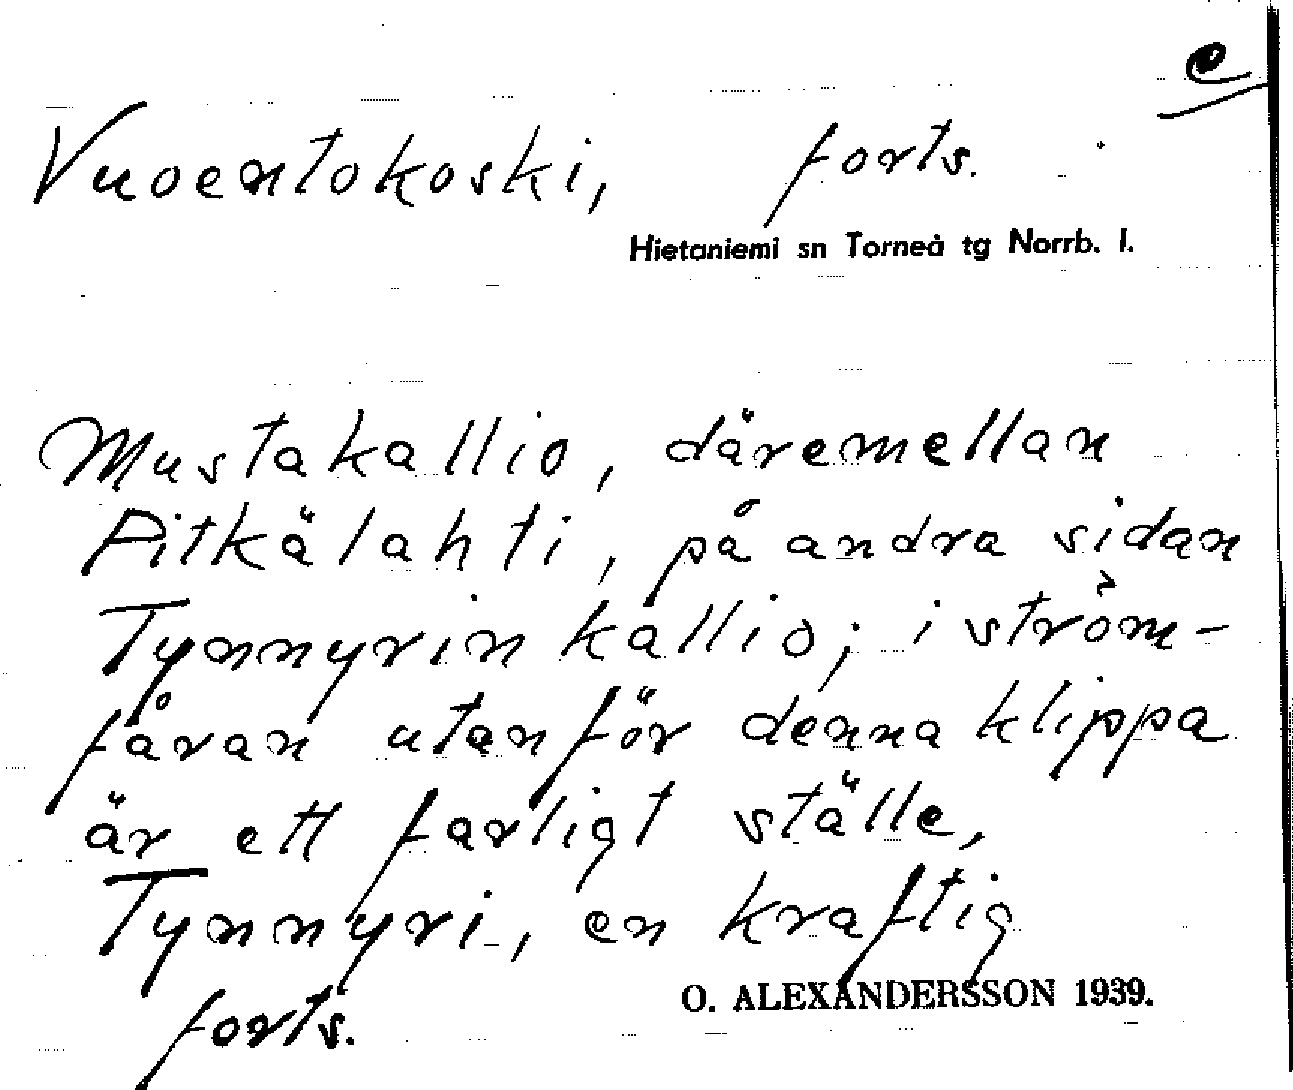 e
Vuoentokoski, forts.
Hietaniemi sn Torneå tg Norrb. l.
Mustakallio, däremellan
Pitkälahti, på andra sidan
Tynnyrinkallio; i ström-
fåran utanför denna klippa
är ett farligt ställe,
Tynnyri, en kraftig
forts.
O. ALEXANDERSSON 1939.